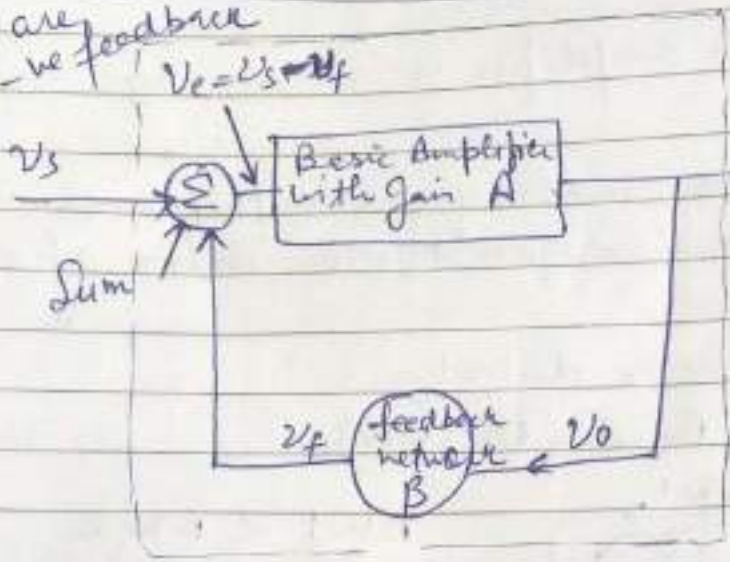 are
-ve feedback
Ve = Vs - Vf
Vs
Basic Amplifier
with Gain A
Σ
Sum
Vf
feedback
network
β
Vo